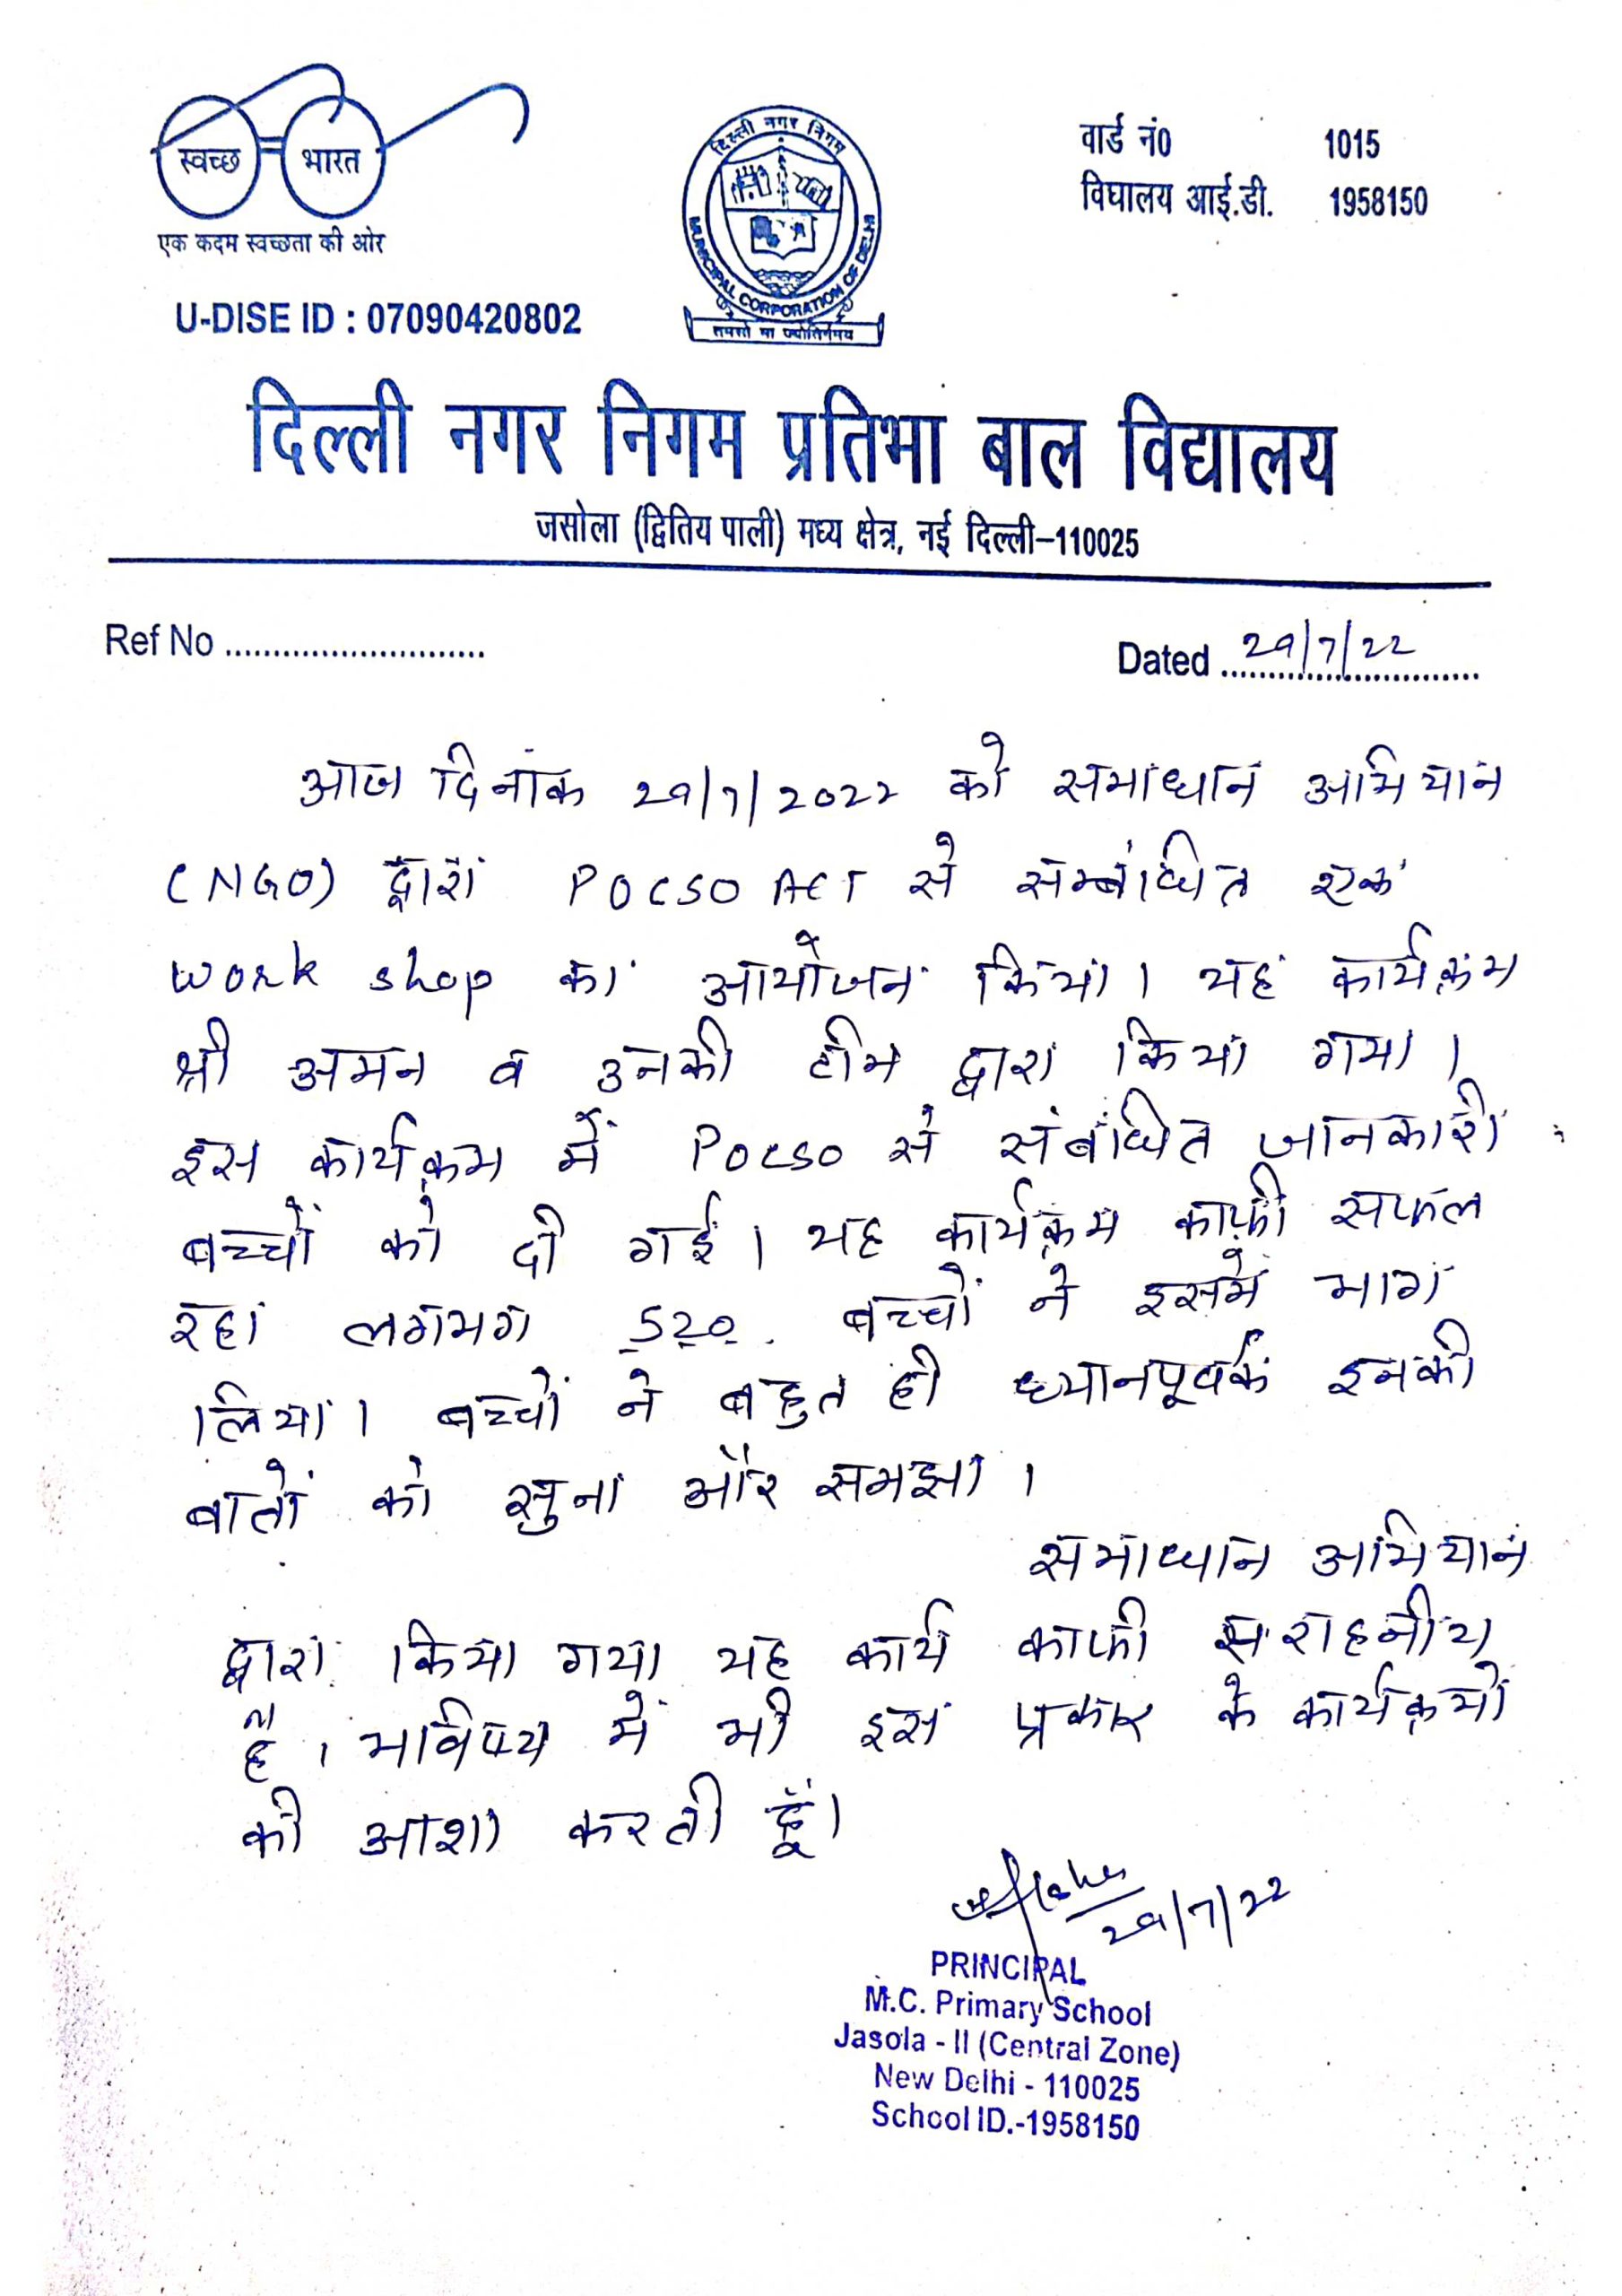 स्वच्छ भारत
एक कदम स्वच्छता की ओर
U-DISE ID : 07090420802
दिल्ली नगर निगम
MUNICIPAL CORPORATION OF DELHI
तमसो मा ज्योतिर्गमय
वार्ड नं0 1015
विघालय आई.डी. 1958150
दिल्ली नगर निगम प्रतिभा बाल विद्यालय
जसोला (द्वितिय पाली) मध्य क्षेत्र, नई दिल्ली-110025
Ref No ........................... Dated 29/7/22
आज दिनांक 29/7/2022 को समाधान अभियान
(NGO) द्वारा POCSO ACT से सम्बंधित एक
work shop का आयोजन किया। यह कार्यक्रम
श्री अमन व उनकी टीम द्वारा किया गया।
इस कार्यक्रम में POCSO से संबंधित जानकारी
बच्चों को दी गई। यह कार्यक्रम काफी सफल
रहा लगभग 520 बच्चों ने इसमें भाग
लिया। बच्चों ने बहुत ही ध्यानपूर्वक इनकी
बातों को सुना और समझा।
समाधान अभियान
द्वारा किया गया यह कार्य काफी सराहनीय
है। भविष्य में भी इस प्रकार के कार्यक्रमों
की आशा करती हूँ।
29/7/22
PRINCIPAL
M.C. Primary School
Jasola - II (Central Zone)
New Delhi - 110025
School ID.-1958150